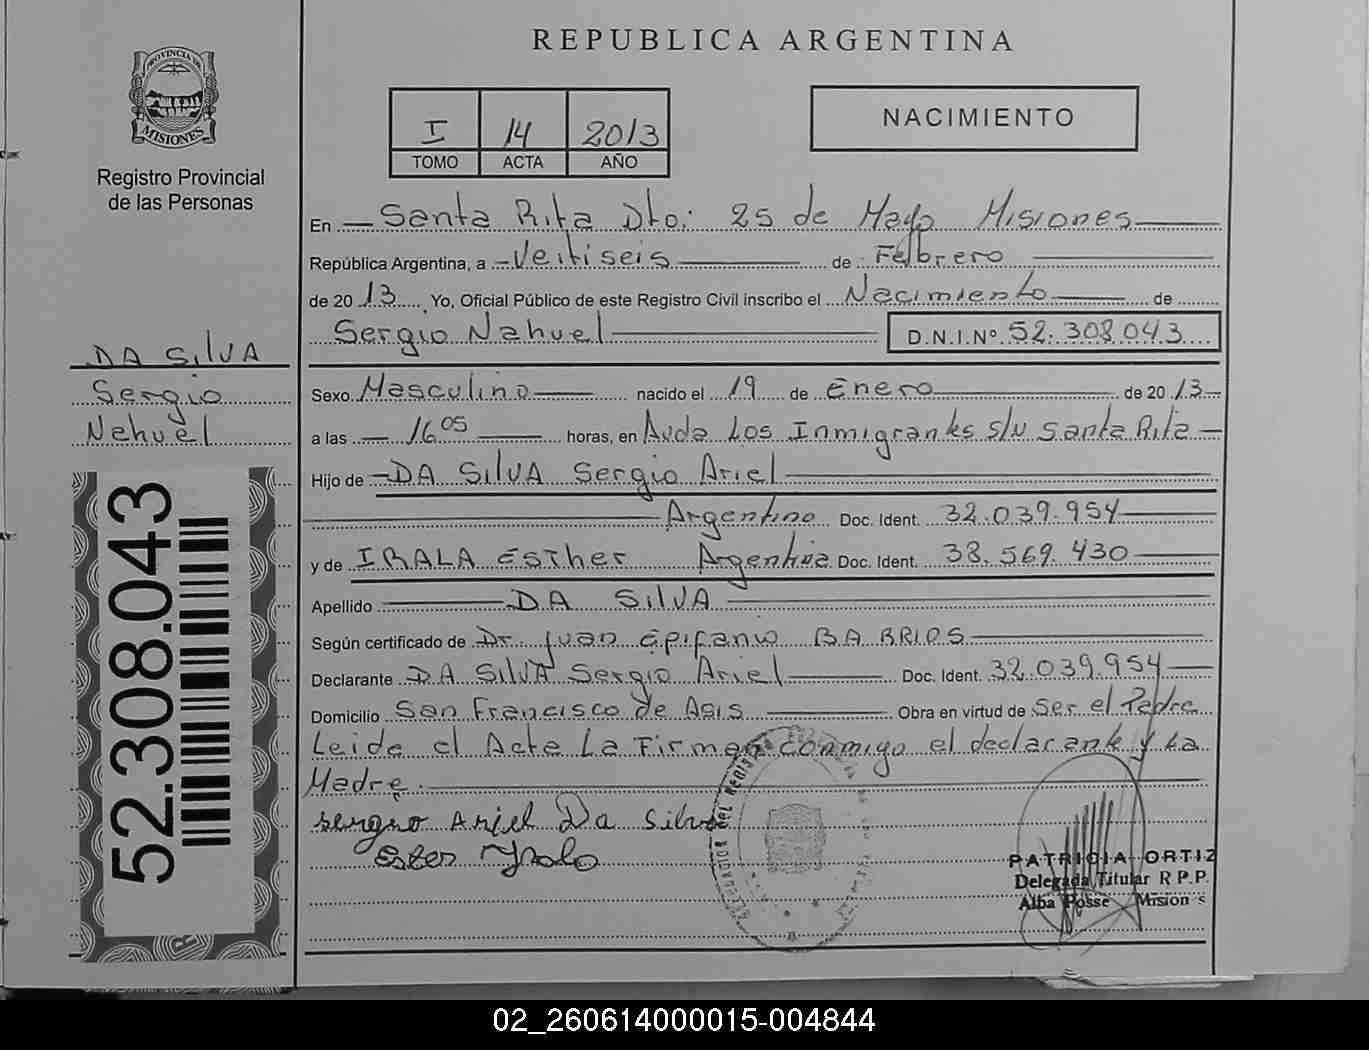 REPUBLICA ARGENTINA
PROVINCIA DE
MISIONES
Registro Provincial
de las Personas
I 14 2013
TOMO ACTA AÑO
NACIMIENTO
En Santa Rita Dto: 25 de Mayo Misiones
República Argentina, a Veitiseis de Felbrero
de 2013 Yo, Oficial Público de este Registro Civil inscribo el Nacimiento de
Sergio Nahuel D.N.I.Nº 52.308.043
DA SilVA
Sergio
Nahuel
52.308.043
Sexo Masculino nacido el 19 de Enero de 2013
a las 16 05 horas, en Avda Los Inmigrantes S/N Santa Rita
Hijo de DA SilVA Sergio Ariel
Argentino Doc. Ident. 32.039.954
y de IRALA Esther Argentina Doc. Ident. 38.569.430
Apellido DA SilVA
Según certificado de Dr. Juan Epifanio BARRIOS
Declarante DA SilVA Sergio Ariel Doc. Ident. 32.039.954
Domicilio San Francisco de Asis Obra en virtud de Ser el Padre
Leida el Acta La Firman conmigo el declarante y La
Madre.
Sergio Ariel Da Silva
Ester Yrala
PATRICIA ORTIZ
Delegada Titular R P.P.
Alba Posse Mision s
02_260614000015-004844